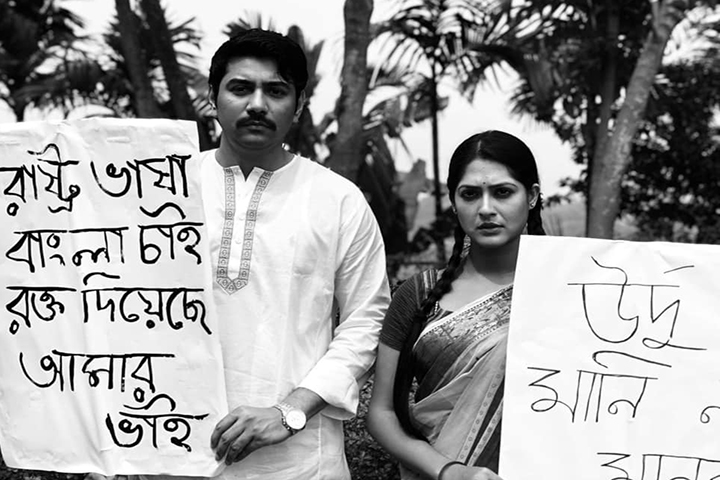 রাষ্ট্র ভাষা
বাংলা চাই
রক্ত দিয়েছে
আমার
ভাই
উর্দু
মানি